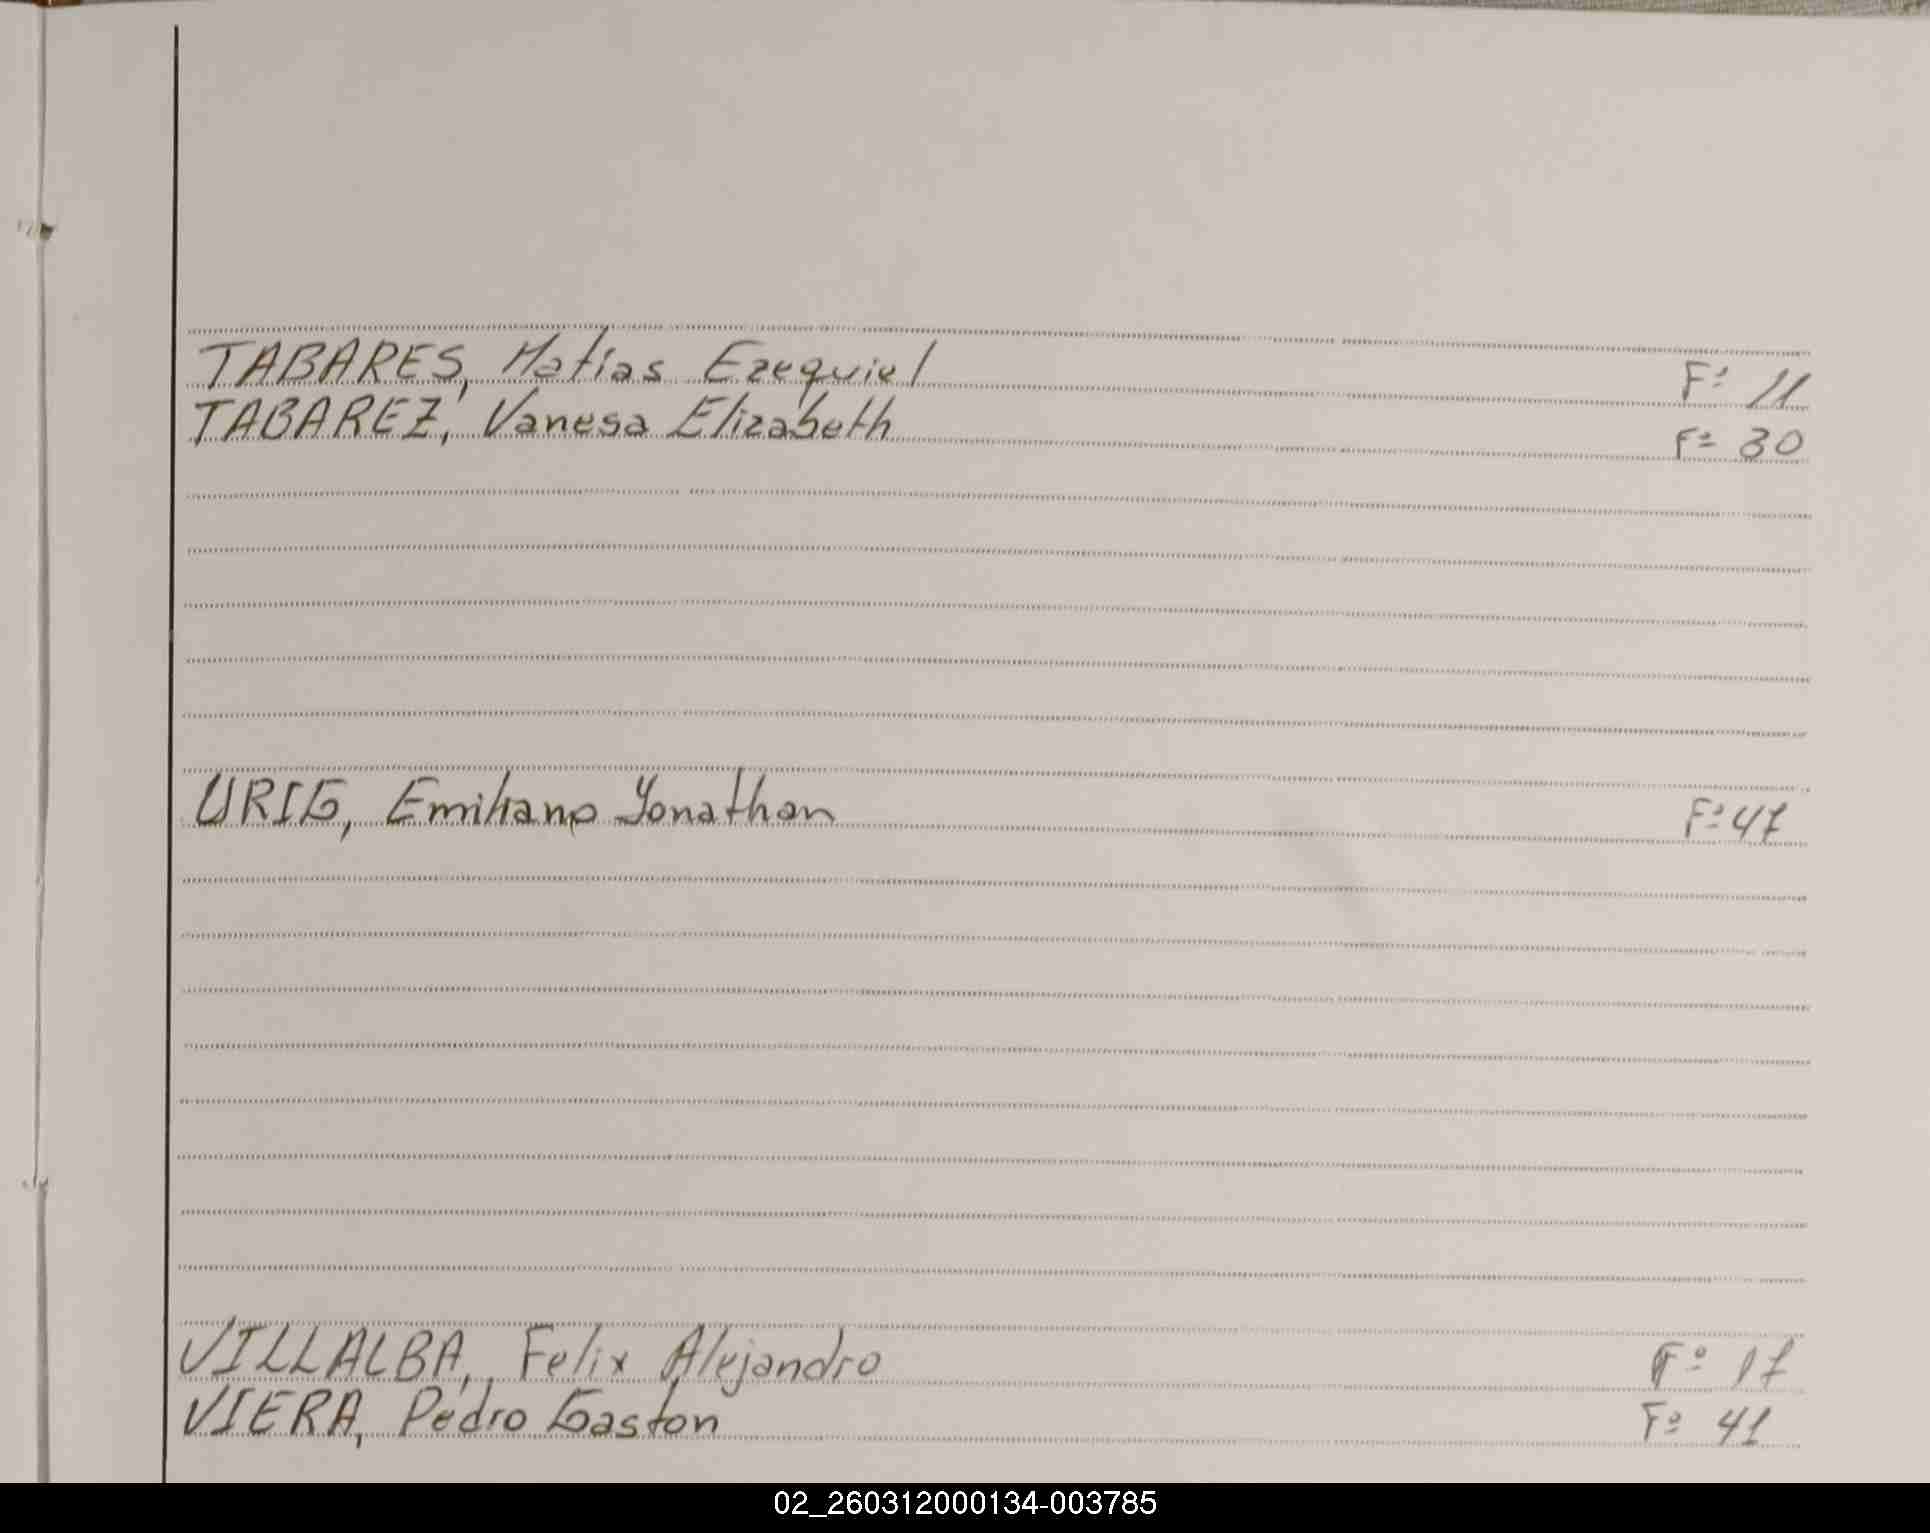 TABARES, Matias Ezequiel F: 11
TABAREZ, Vanesa Elizabeth Fº 30
URIG, Emiliano Yonathan Fº 47
VILLALBA, Felix Alejandro Fº 17
VIERA, Pedro Gaston Fº 41
02_260312000134-003785